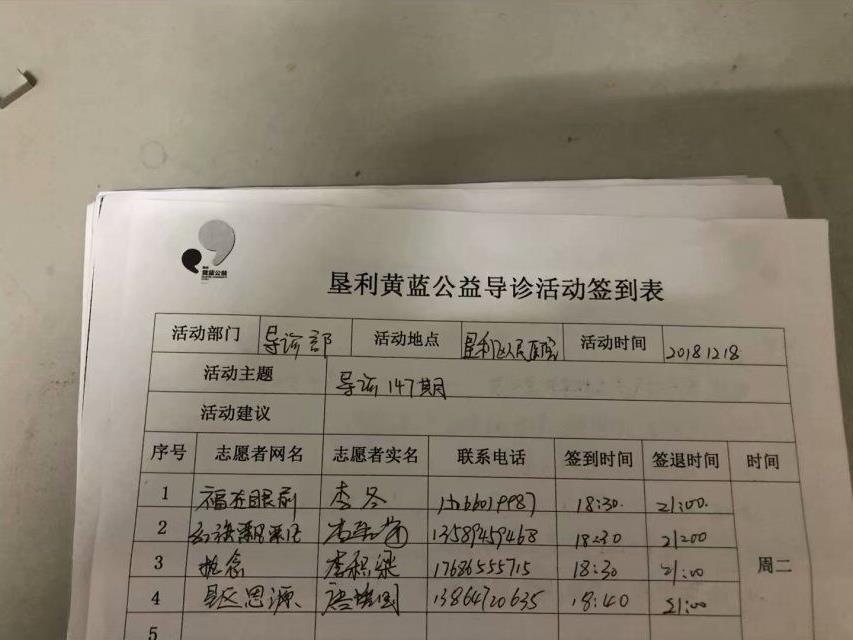 黄蓝公益
垦利黄蓝公益导诊活动签到表
活动部门 导诊部 活动地点 垦利区人民医院 活动时间 20181218
活动主题 导诊147期
活动建议
序号 志愿者网名 志愿者实名 联系电话 签到时间 签退时间 时间
1 福在眼前 李冬 18:30. 21:00.
2 13589459468 18:30 21:00
3 李积梁 17686555715 18:30 21:00
周二
4 思源 13864720635 18:40 21:00
5